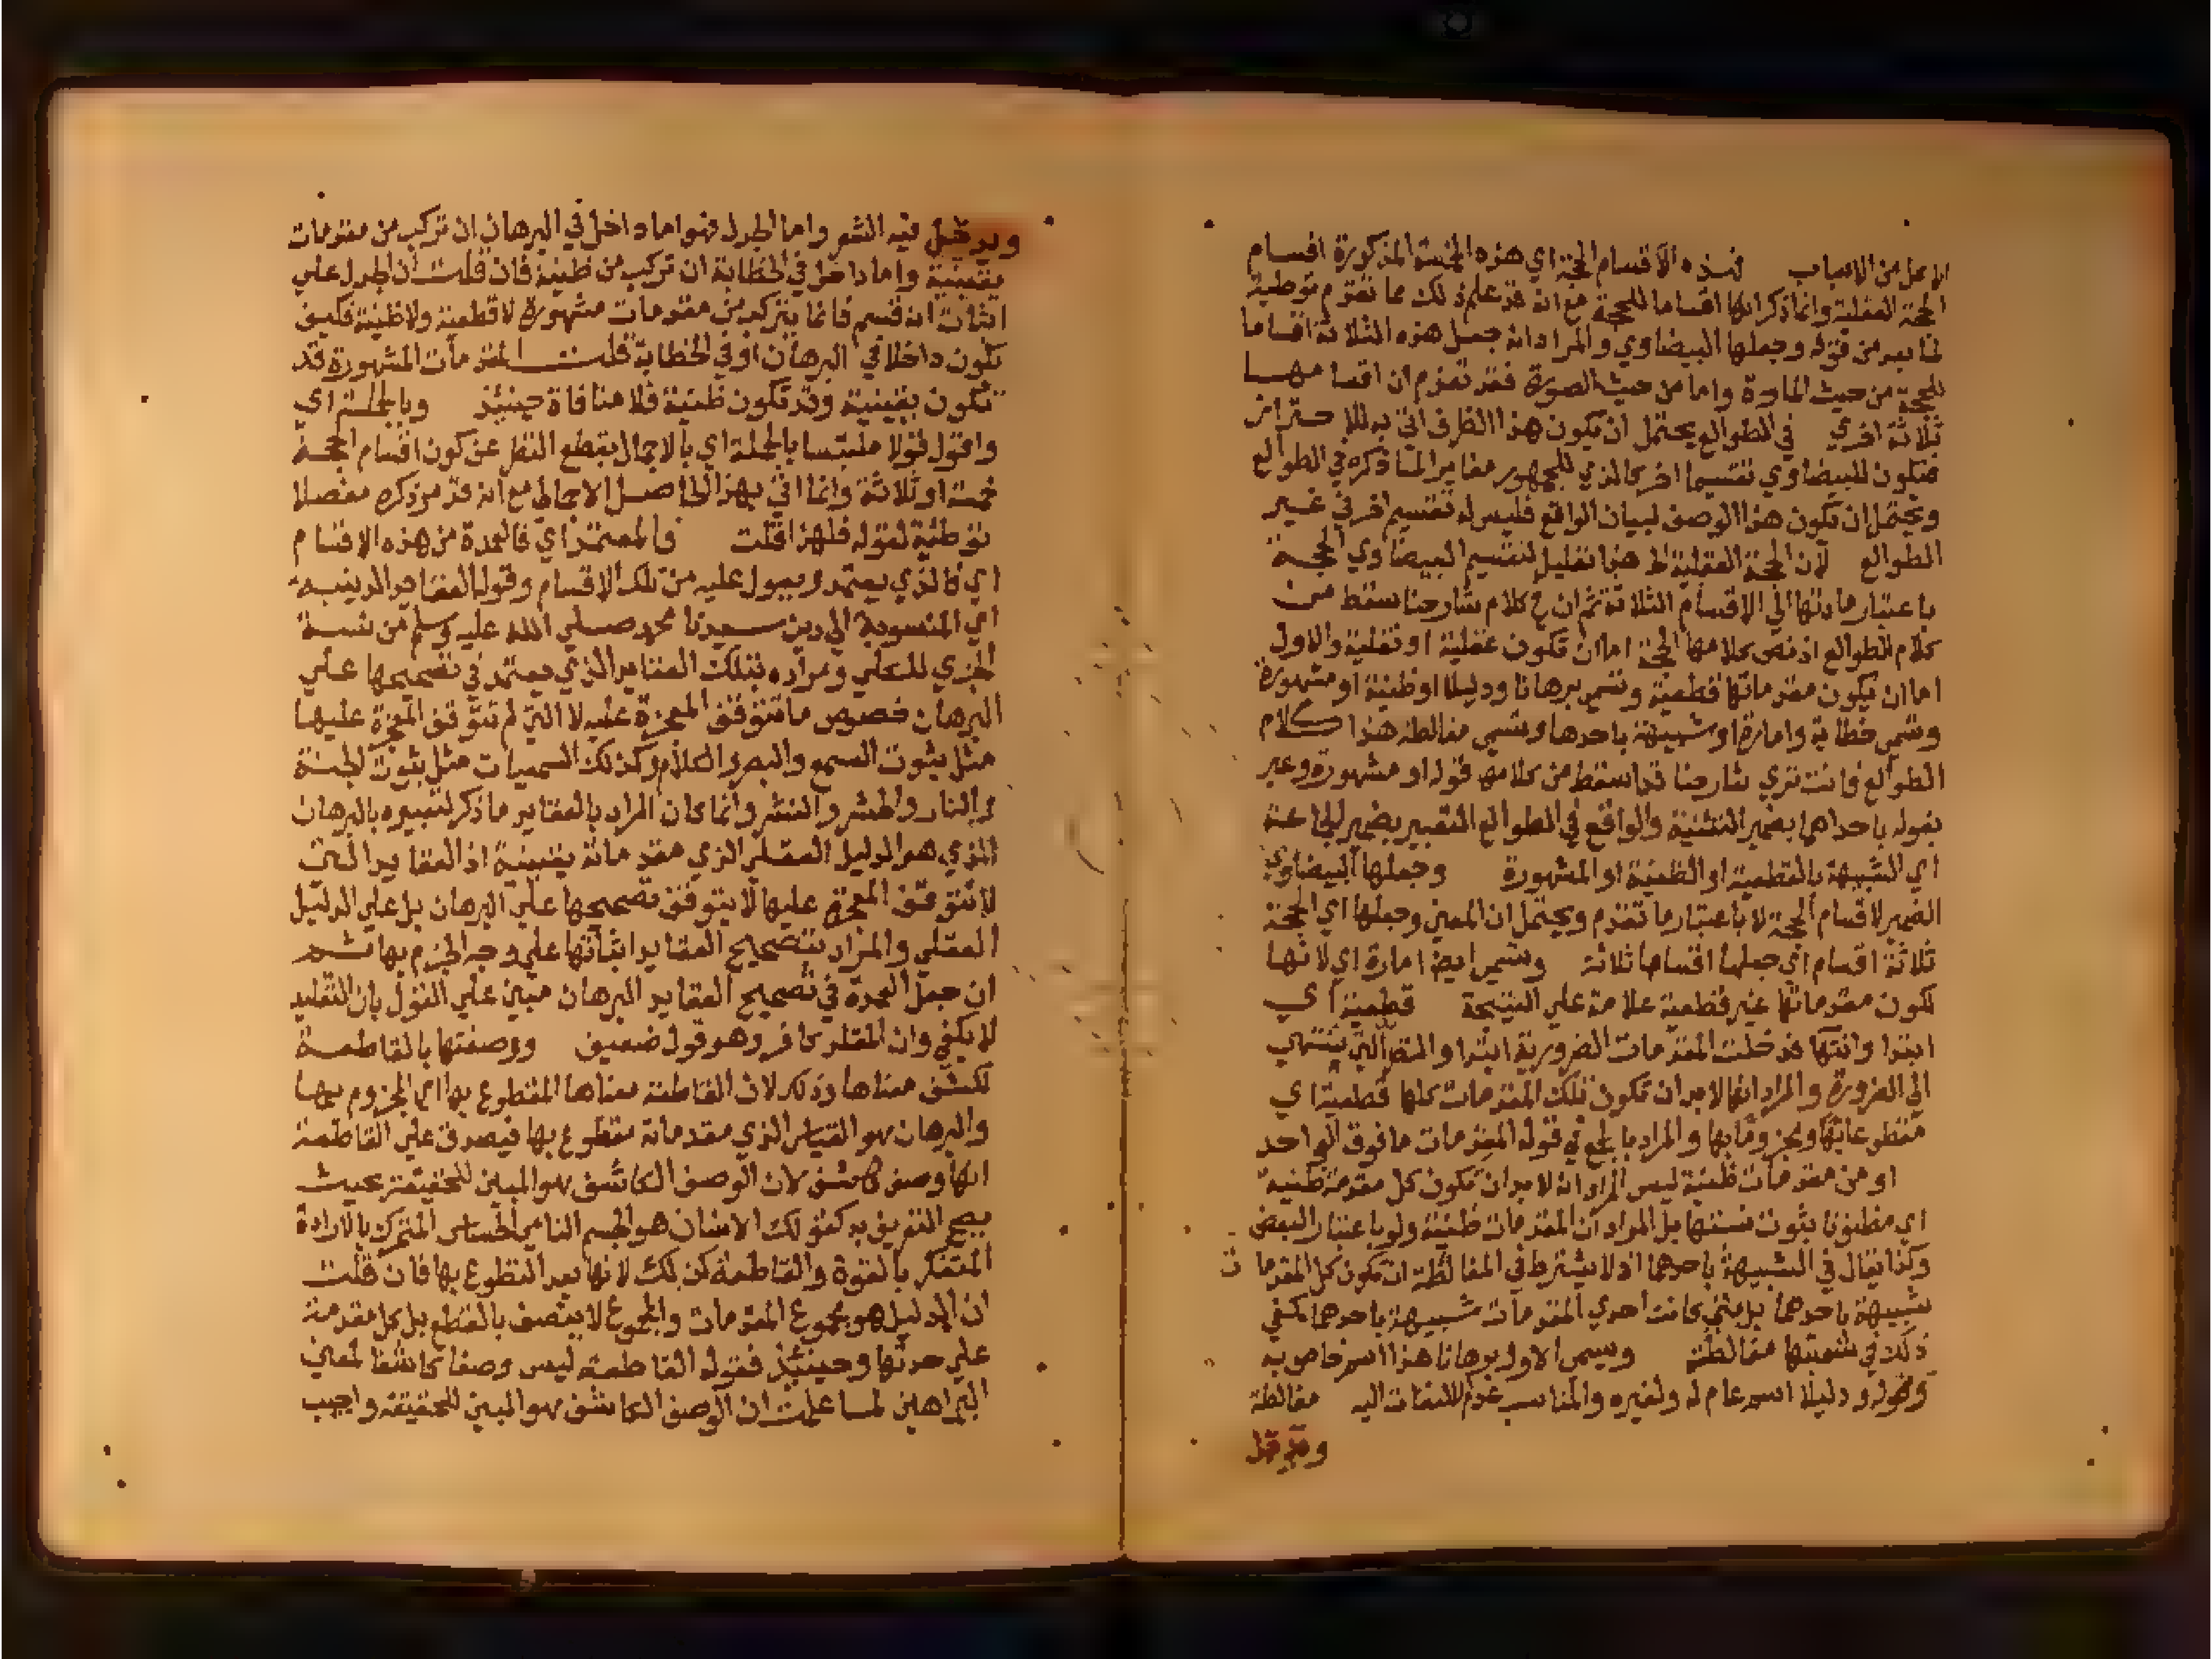 الاعل من الاسباب فهذه الاقسام الحجة اي هذه الخمسة المذكورة اقسام
الحجة العقلية وانما ذكر انها اقساما للحجة مع انه قد علم ذلك مما تقدم توطية
لما بعد من قوله وجعلها البيضاوي والمراد انه جعل هذه الثلاثة اقساما
للحجة من حيث المادة واما من حيث الصورة فقد تقدم ان اقسامها
ثلاثة اخري في الطوالع يحتمل ان يكون هذا الظرف اتي به للاحتراز
فيكون للبيضاوي تقسيما اخر كالذي للجمهور مغايرا لما ذكره في الطوالع
ويحتمل ان يكون هذا الوصف لبيان الواقع فليس له تقسيم اخر في غير
الطوالع لان الحجة العقلية الخ هذا تعليل لتقسيم البيضاوي الحجة
باعتبار مادتها الي الاقسام الثلاثة ثم ان في كلام شارحنا سقط من
كلام الطوالع اذ نص كلامها الحجة اما ان تكون عقلية او نقلية والاول
اما ان يكون مقدماتها قطعية وتسمي برهانا ودليلا او ظنية او مشهورة
وتسمي خطابة وامارة او شبيهة باحدها وتسمي مغالطة هذا كلام
الطوالع فانت تري شارحنا قد اسقط من كلامها قوله او مشهورة وعبر
بقوله باحداهما بضمير التثنية والواقع في الطوالع التعبير بضمير الجماعة
اي الشبيهة بالقطعية او الظنية او المشهورة وجعلها البيضاوي
الضمير لاقسام الحجة لا باعتبار ما تقدم ويحتمل ان المعني وجعلها اي الحجة
ثلاثة اقسام اي جعلها اقساما ثلاثة وتسمي ايضا امارة اي لانها
لكون مقدماتها غير قطعية علامة علي النتيجة قطعية اي
ابتدا وانتها فدخلت المقدمات الضرورية ابتدا والنظر التي تنتهي
الي الضرورة والمراد انها لابد ان تكون تلك المقدمات كلها قطعية اي
مقطوعا بها ومجزوما بها والمراد بالجمع في قوله المقدمات ما فوق الواحد
او من مقدمات ظنية ليس المراد انه لابد ان تكون كل مقدمة ظنية
اي مظنونا بثبوت نسبتها بل المراد ان المقدمات ظنية ولو باعتبار البعض
وكذا يقال في الشبيهة باحدهما اذ لا يشترط في المغالطة ان تكون كل المقدمات
شبيهة باحدهما بل متي كانت احدي المقدمات شبيهة باحدهما كفي
ذلك في تسميتها مغالطة ويسمي الاول برهانا هذا اسم خاص به
وقوله ودليلا اسم عام له ولغيره والمناسب عدم الالتفات اليه مغالطة
ويدخل
ويدخل فيه الشعر واما الجدل فهو اما داخل في البرهان ان تركب من مقدمات
يقينية واما داخل في الخطابة ان تركب من ظنية فان قلت ان الجدل علي
اثبات انه قسم فانما يتركب من مقدمات مشهورة لا قطعية ولا ظنية فكيف
يكون داخلا في البرهان او في الخطابة قلت المقدمات المشهورة قد
تكون يقينية وقد تكون ظنية فلا منافاة حينئذ وبالجملة اي
واقول قولا ملتبسا بالجملة اي بالاجمال بقطع النظر عن كون اقسام الحجة
خمسة او ثلاثة وانما اتي بهذا الحاصل الاجمالي مع انه قد مر ذكره مفصلا
توطئة لقوله فلهذا قلت والمعتمد اي فالعمدة من هذه الاقسام
اي كالذي يعتمد ويعول عليه من تلك الاقسام وقوله العقايد الدينية
اي المنسوبة الي دين سيدنا محمد صلي الله عليه وسلم من نسبة
الجزي للكلي ومراده بتلك العقايد الذي يعتمد في تصحيحها علي
البرهان خصوص ما تتوقف المعجزة عليه لا التي لم تتوقف المعجزة عليها
مثل ثبوت السمع والبصر والكلام وكذلك السمعيات مثل ثبوت الجنة
والنار والحشر والنشر وانما كان المراد بالعقايد ما ذكر لتعبيره بالبرهان
الذي هو الدليل العقلي الذي مقدماته يقينية اذ العقايد التي
لا تتوقف المعجزة عليها لا يتوقف تصحيحها علي البرهان بل علي الدليل
العقلي والمراد بتصحيح العقايد اثباتها علي وجه الجزم بها ثم
ان جعل العمدة في تصحيح العقايد البرهان مبين علي القول بان التقليد
لا يكفي وان المقلد كافر وهو قول ضعيف ووصفتها بالقاطعة
لكشف معناها وذلك لان القاطعة معناها المقطوع بها اي المجزوم بها
والبرهان هو القياس الذي مقدماته مقطوع بها فيصدق علي القاطعة
انها وصف كاشف لان الوصف الكاشف هو المبين للحقيقة بحيث
يصح التعريف به كقولك الانسان هو الجسم النامي الحساس المتحرك بالارادة
المتفكر بالقوة والقاطعة كذلك لانها بعد المقطوع بها فان قلت
ان الدليل هو مجموع المقدمات والمجموع لا يتصف بالقطع بل كل مقدمة
علي حدتها وحينئذ فقوله القاطعة ليس وصفا كاشفا لمعني
البراهين لما علمت ان الوصف الكاشف هو المبين للحقيقة واجيب